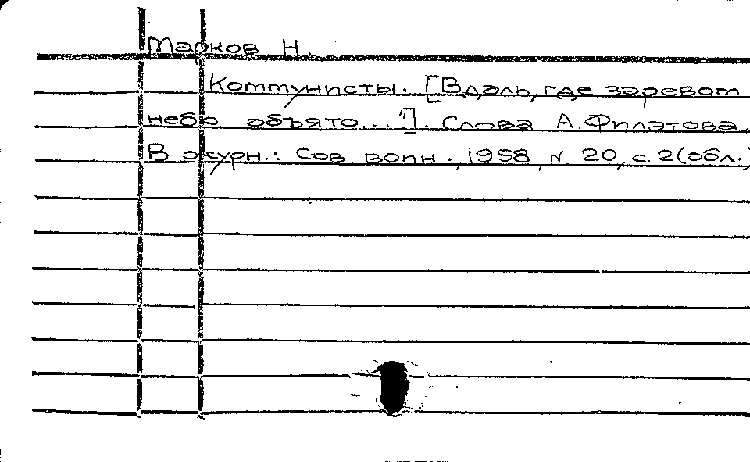 Марков Н.
Коммунисты. [Вдаль, где заревом
небо объято...]. Слова А. Филатова.
В журн.: Сов воин., 1958, N 20, с. 2 (обл.)